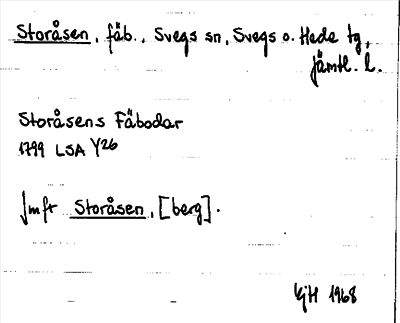 Storåsen, fäb., Svegs sn, Svegs o. Hede tg,
Jämtl. l.
Storåsens Fäbodar
1799 LSA Y26
Jmfr Storåsen, [berg].
KjH 1968